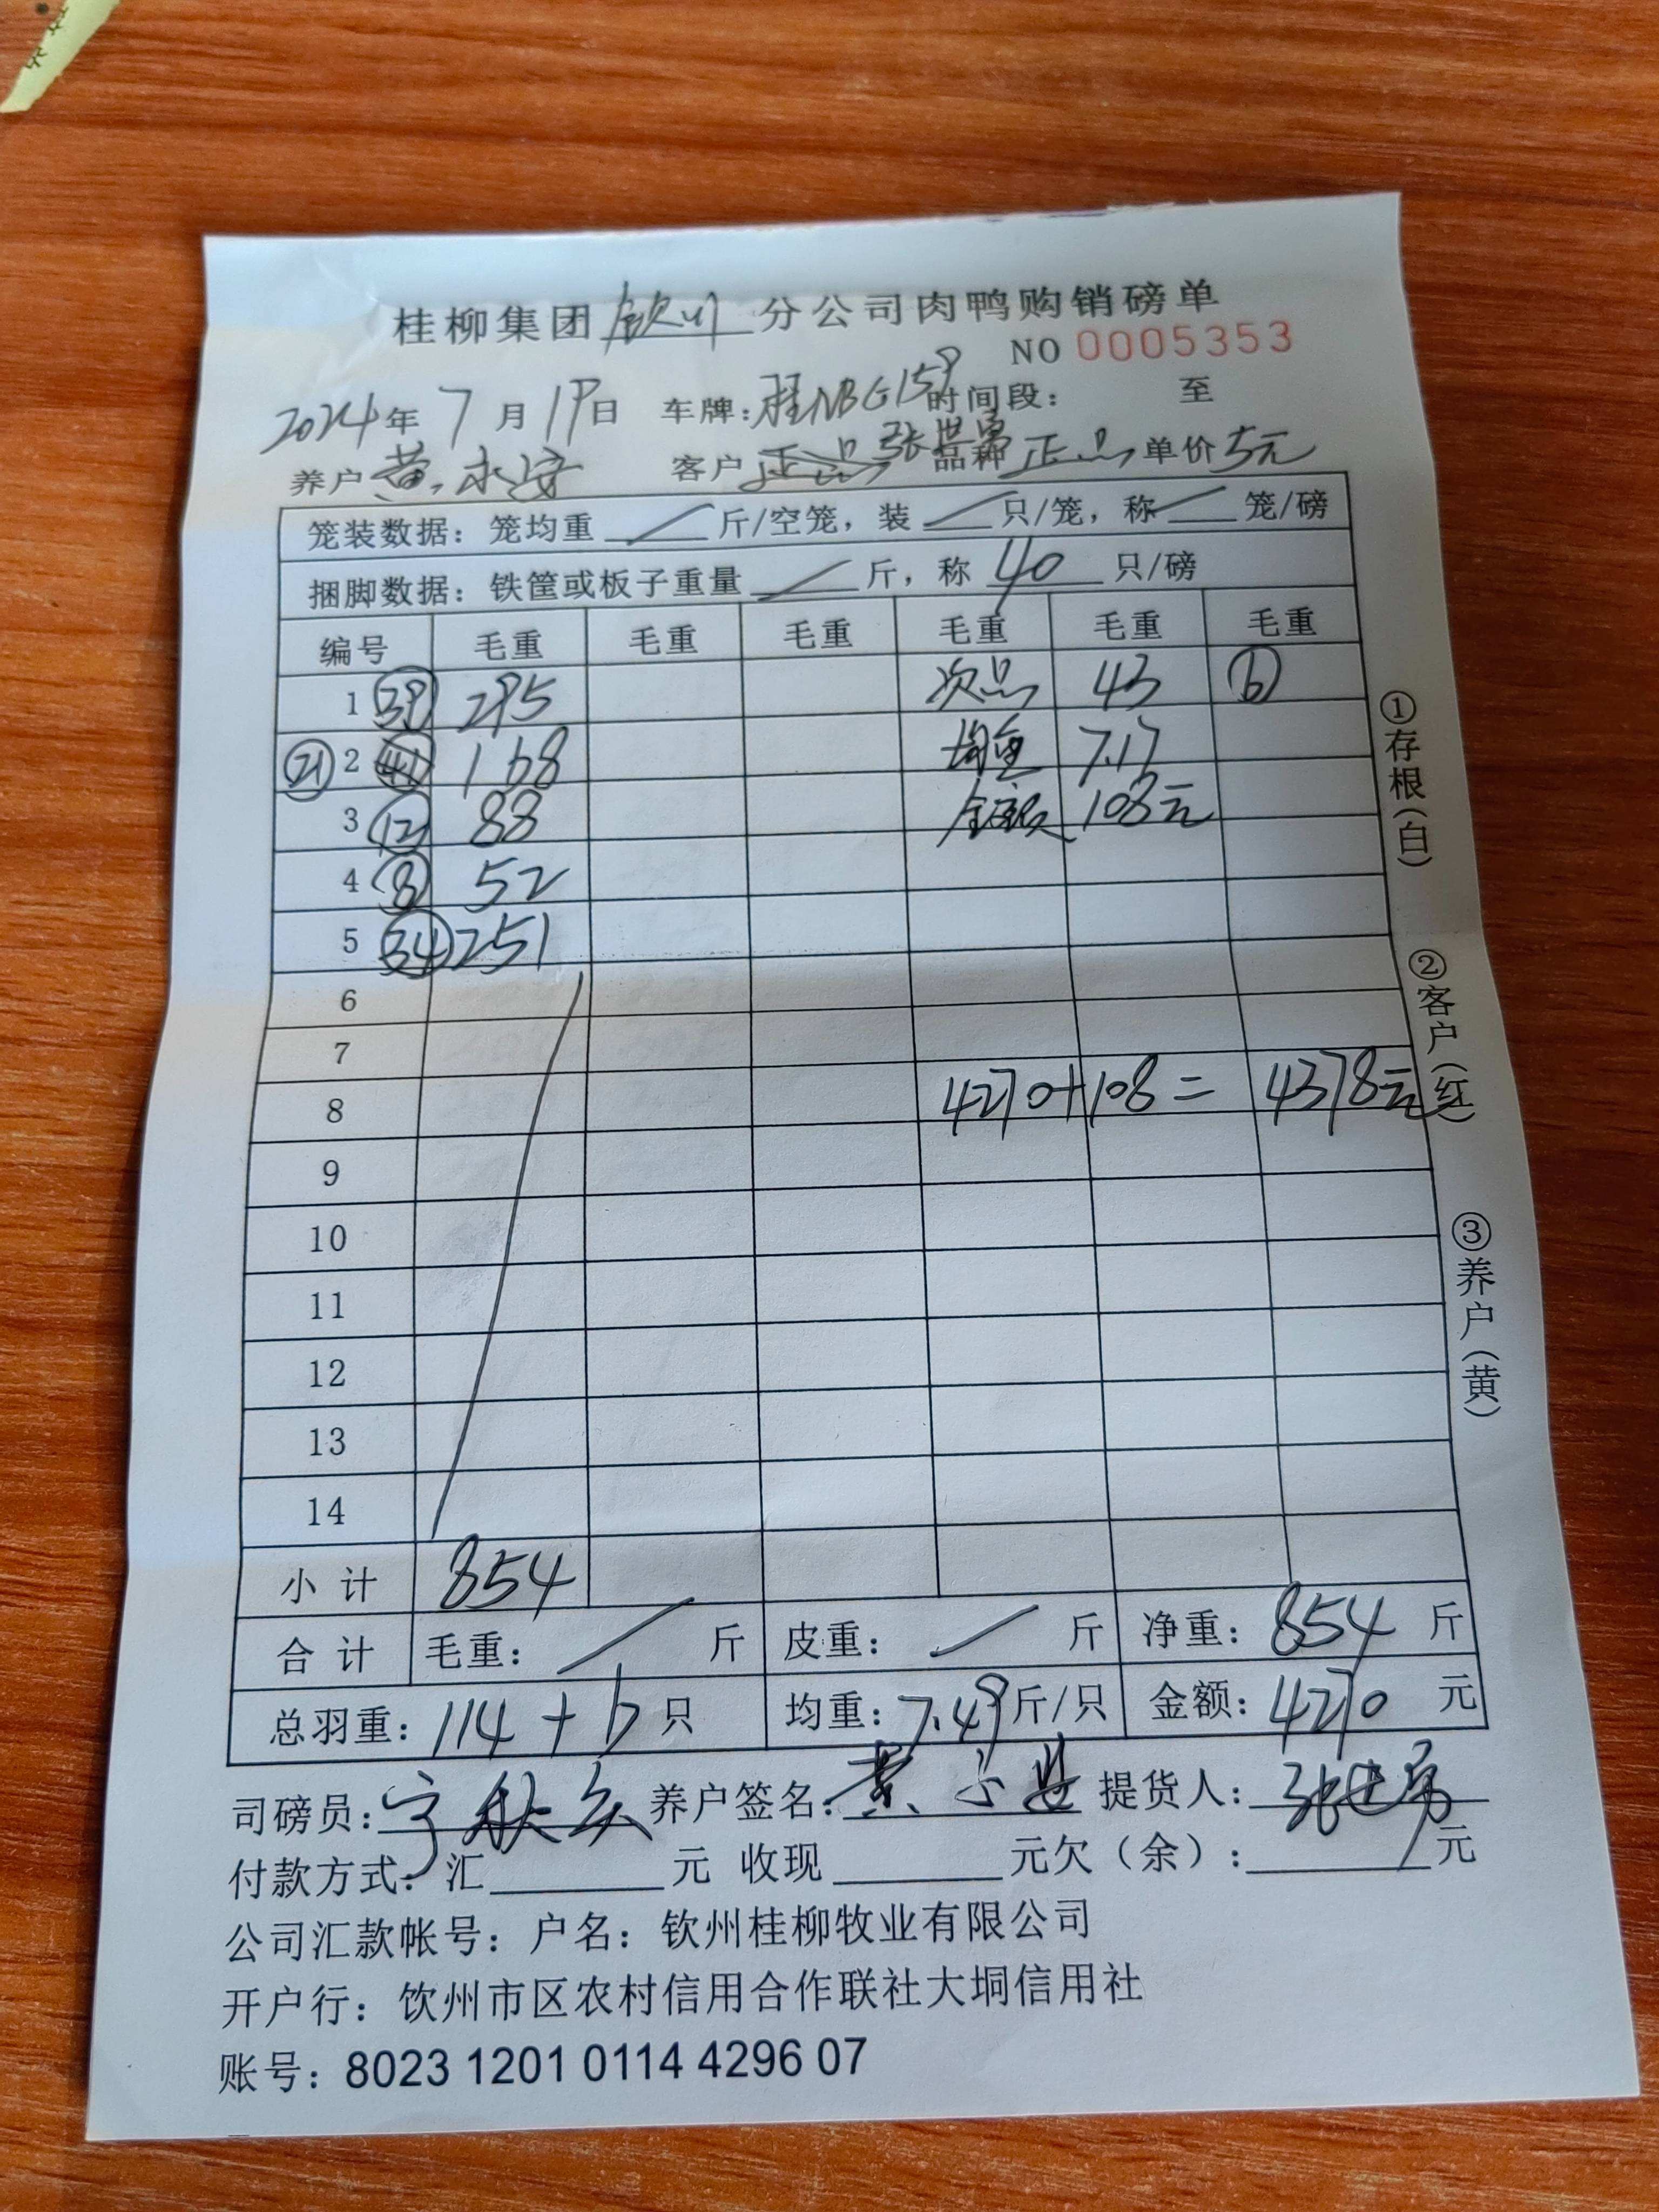 桂柳集团钦州分公司肉鸭购销磅单
NO 0005353
2024年7月19日 车牌:桂NBG159时间段: 至
养户黄永安 客户正品张世勇 品种正品 单价5元
笼装数据:笼均重 / 斤/空笼,装 / 只/笼,称 / 笼/磅
捆脚数据:铁筐或板子重量 / 斤,称 40 只/磅
编号 毛重 毛重 毛重 毛重 毛重 毛重
1 39 295 次品 43 6
21 2 41 168 均重 7.17
3 12 88 金额 108元
4 8 52
5 34 251
6
7
8 4270+108= 4378元
9
10
11
12
13
14
小计 854
合计 毛重: / 斤 皮重: / 斤 净重: 854 斤
总羽重: 114+6 只 均重: 7.49 斤/只 金额: 4270 元
司磅员: 养户签名: 黄 提货人: 张世勇
付款方式:汇 元 收现 元欠(余): 元
公司汇款帐号:户名:钦州桂柳牧业有限公司
开户行:饮州市区农村信用合作联社大垌信用社
账号:8023 1201 0114 4296 07
①存根(白)
②客户(红)
③养户(黄)